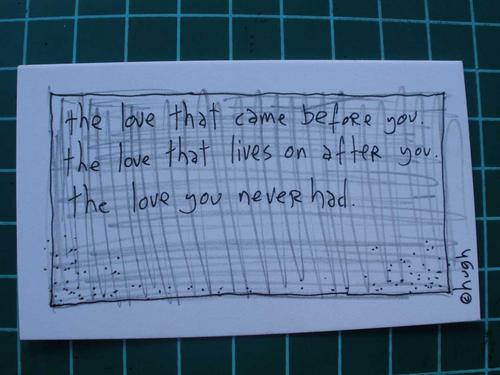 the love that came before you.
the love that lives on after you.
the love you never had.
@hugh